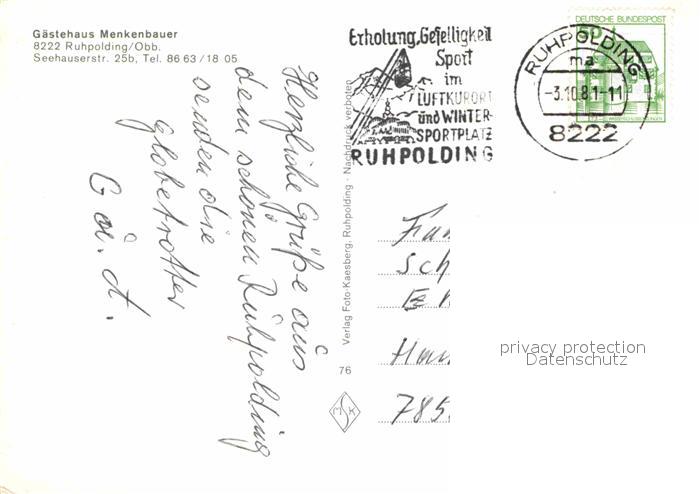 Gästehaus Menkenbauer
8222 Ruhpolding/Obb.
Seehauserstr. 25b, Tel. 86 63/18 05
Herzliche Grüße aus
dem schönen Ruhpolding
senden die
Globetrotter
G. u. A.
Verlag Foto-Kaesberg, Ruhpolding · Nachdruck verboten
76
MSK
Erholung, Geselligkeit
Sport
im
LUFTKURORT
und WINTER-
SPORTPLATZ
RUHPOLDING
RUHPOLDING
ma
-3.10.81-11
8222
DEUTSCHE BUNDESPOST
50
Fam
Sch
Han
785
privacy protection
Datenschutz